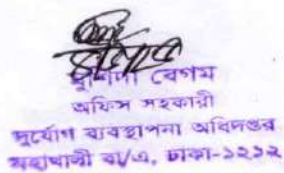 বেগম
অফিস সহকারী
দুর্যোগ ব্যবস্থাপনা অধিদপ্তর
মহাখালী বা/এ, ঢাকা-১২১২